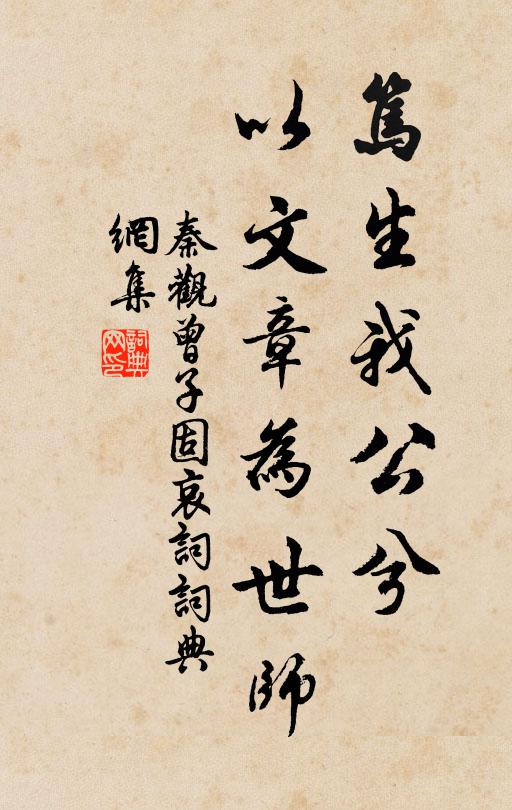 篤生我公兮
以文章為世師
秦觀曾子固哀詞詞典
網集
詞典网印